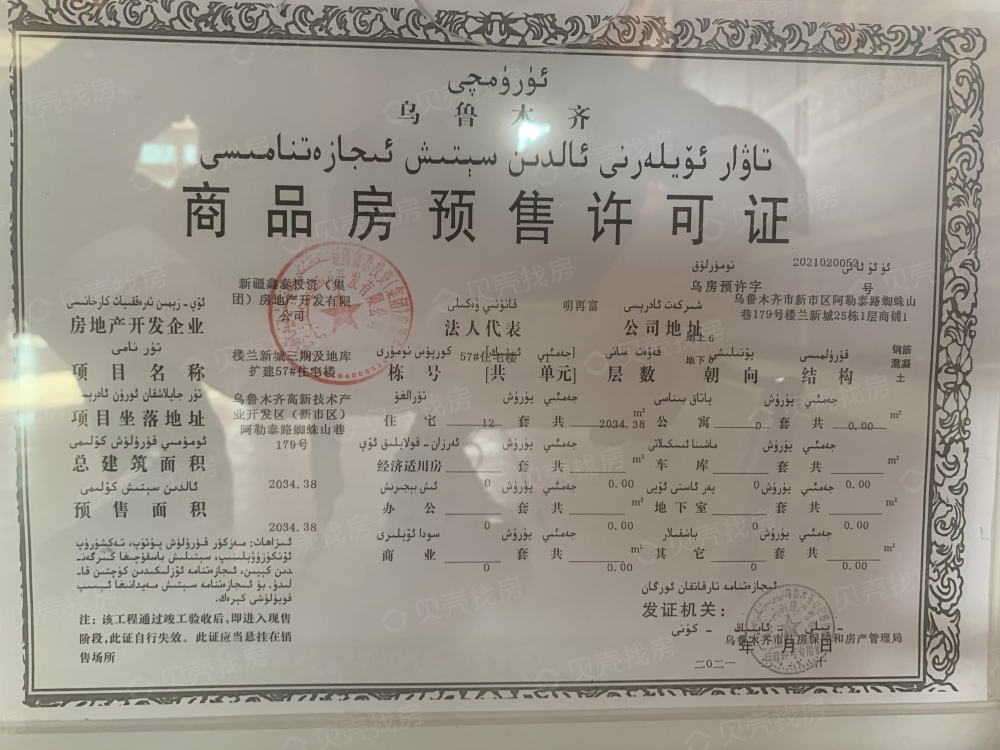 ئۈرۈمچى
乌鲁木齐
تاۋار ئۆيلەرنى ئالدىن سېتىش ئىجازەتنامىسى
商品房预售许可证
نومۇرلۇق 2021020052
乌房预许字 号
ئۆي-زېمىن تەرەققىيات كارخانىسى
房地产开发企业
新疆鑫泰投资(集
团)房地产开发有限
公司
قانۇنىي ۋەكىلى
法人代表
明再富
شىركەت ئادرېسى
公司地址
乌鲁木齐市新市区阿勒泰路蜘蛛山
巷179号楼兰新城25栋1层商铺1
تۈر نامى
项目名称
楼兰新城三期及地库
扩建57#住宅楼
كورپۇس نومۇرى
栋号 [共 单元]
57#住宅楼
قەۋەت سانى
层数
地上6
地下0
يۆنىلىشى
朝向
قۇرۇلمىسى
结构
钢筋
混凝
土
تۈر جايلاشقان ئورۇن ئادرېسى
项目坐落地址
乌鲁木齐高新技术产
业开发区(新市区)
阿勒泰路蜘蛛山巷
179号
تۇرالغۇ جەمئىي يۈرۈش
住宅 12 套 共 2034.38 m²
ياتاق بىناسى جەمئىي يۈرۈش
公寓 0 套 共 0.00 m²
ئومۇمىي قۇرۇلۇش كۆلىمى
总建筑面积
2034.38
ئەرزان-قولايلىق ئۆي جەمئىي يۈرۈش
经济适用房 0 套 共 0.00 m²
ماشىنا ئىسكىلاتى جەمئىي يۈرۈش
车库 0 套 共 0.00 m²
ئالدىن سېتىش كۆلىمى
预售面积
2034.38
ئىش بېجىرىش جەمئىي يۈرۈش
办公 0 套 共 0.00 m²
يەر ئاستى ئۆيى جەمئىي يۈرۈش
地下室 0 套 共 0.00 m²
سودا ئۆيلىرى جەمئىي يۈرۈش
商业 0 套 共 0.00 m²
باشقىلار جەمئىي يۈرۈش
其它 0 套 共 0.00 m²
注：该工程通过竣工验收后，即进入现售
阶段，此证自行失效。此证应当悬挂在销
售场所
ئىجازەتنامە تارقاتقان ئورگان
发证机关：
乌鲁木齐市住房保障和房产管理局
- يىلى - ئاينىڭ - كۈنى
年 月 日
贝壳找房